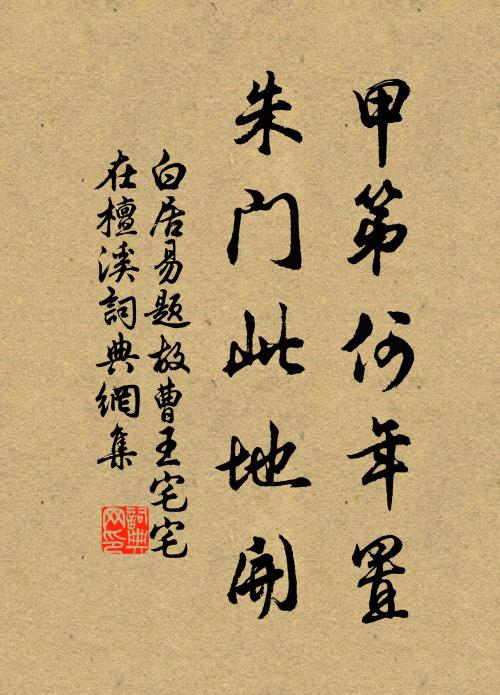 甲第何年置
朱门此地开
白居易題故曹王宅宅
在檀溪詞典網集
詞典
网印